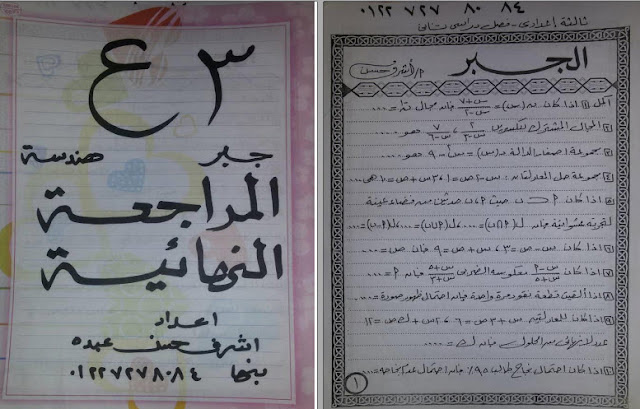 ٣ ع
جبر هندسة
المراجعة
النهائية
اعداد
اشرف حسن عبده
بنها ٠١٢٢٧٢٧٨٠٨٤
٠١٢٢ ٧٢٧ ٨٠ ٨٤
ثالثة إعدادى - فصل دراسى ثانى
الجبر
أ/أشرف حسن
أكمل ١ اذا كان ن(س) = س+٧ / س-٢ فإن مجال ن = ....
٢ المجال المشترك للكسرين ٢ / س-٣ ، ٧ / س-٦ هو ....
٣ مجموعة اصفار الدالة د(س) = س٢ - ٩ هو ....
٤ مجموعة حل المعادلتان : س - ٢ص = ١ ، ٣س + ص = ١٠ هى ...
٥ اذا كان ٢ ⊃ ب حيث ٢ ، ب حدثين من فضاء عينة
لتجربة عشوائية فإن ل(٢∩ب) = .... ، ل(٢∪ب) = .... ، ل(٢-ب) = ....
٦ اذا كان س - ص = ٣ ، س + ص = ٩ فإن ص = ....
٧ اذا كان س-٢ / س+٥ معكوسه الضربى س+٥ / س+٣ فإن ٢ = ....
٨ اذا ألقيت قطعة نقود مرة واحدة فإن احتمال ظهور صورة = ....
٩ اذا كان المعادلتين س + ٣ص = ٦ ، ٢س + ك ص = ١٢
عدد لانهائى من الحلول فإن ك = ....
١٠ اذا كان احتمال نجاح طالب ٩٥٪ فإن احتمال عدم نجاحه = ....
١